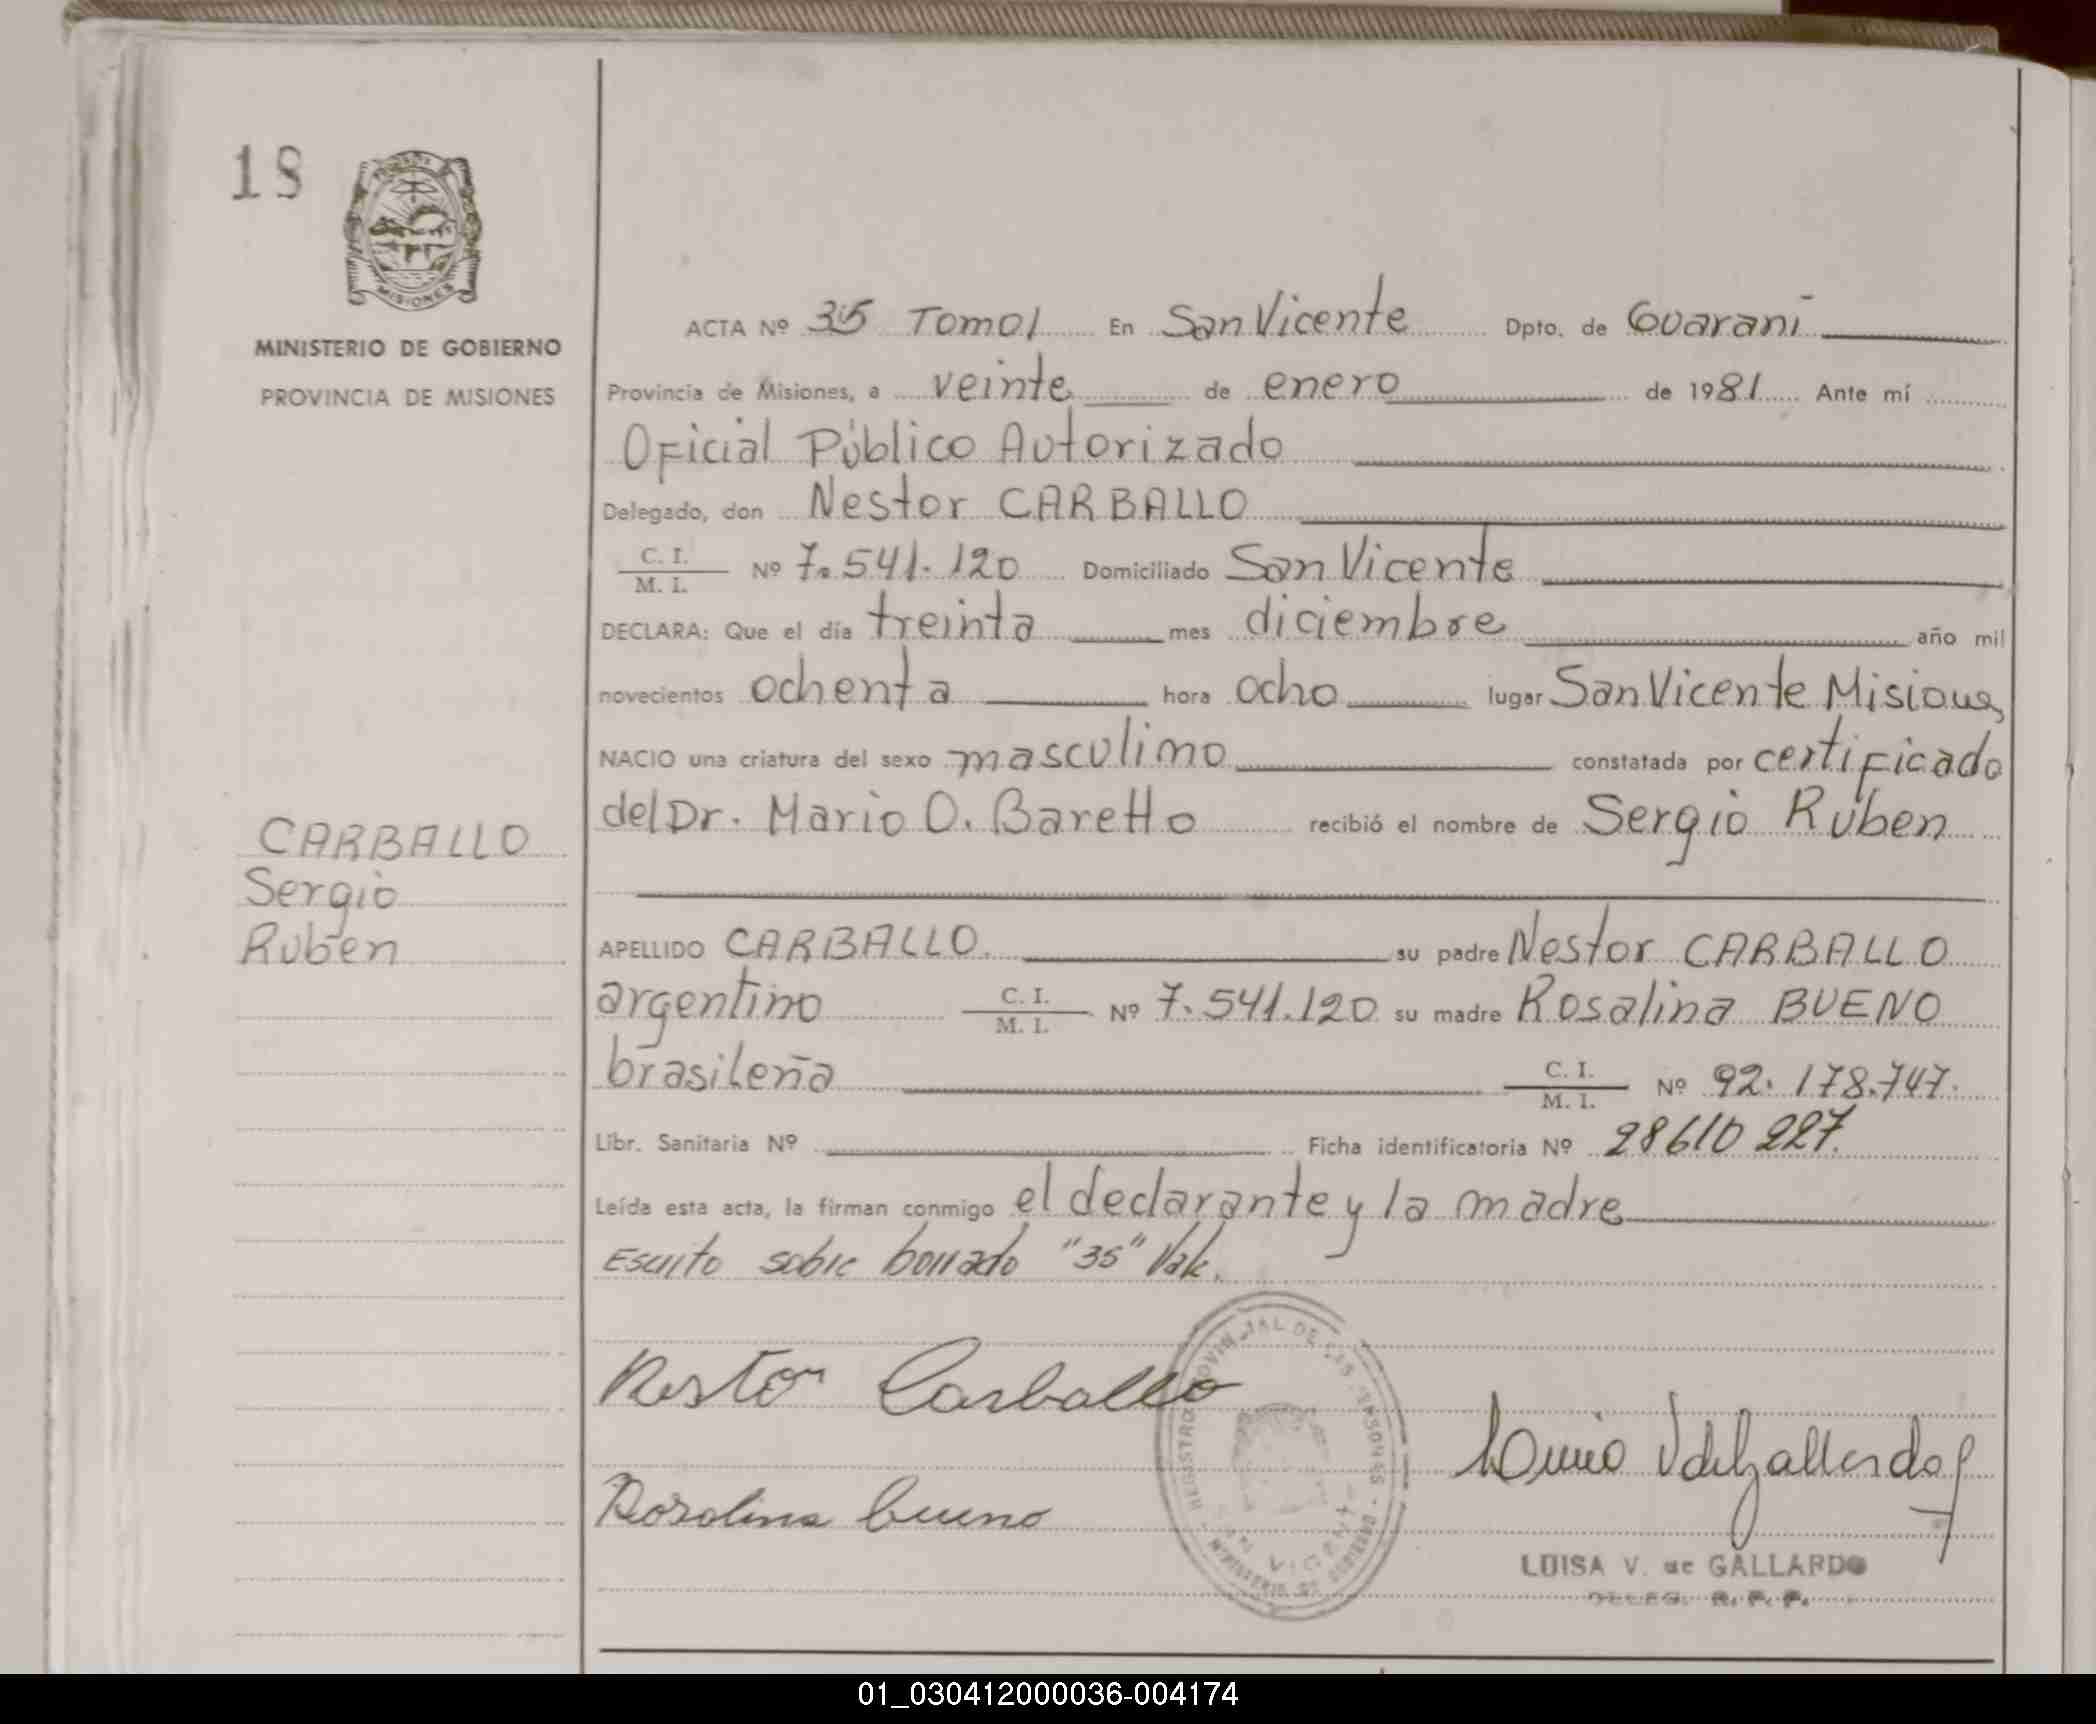 18
MISIONES
MINISTERIO DE GOBIERNO
PROVINCIA DE MISIONES
CARBALLO
Sergio
Ruben
ACTA Nº 35 Tomo I En San Vicente Dpto. de Guaraní
Provincia de Misiones, a veinte de enero de 1981 Ante mí
Oficial Público Autorizado
Delegado, don Nestor CARBALLO
C. I.
M. I. Nº 7.541.120 Domiciliado San Vicente
DECLARA: Que el día treinta mes diciembre año mil
novecientos ochenta hora ocho lugar San Vicente Misiones
NACIO una criatura del sexo masculino constatada por certificado
del Dr. Mario O. Baretto recibió el nombre de Sergio Rúben
APELLIDO CARBALLO. su padre Nestor CARBALLO
argentino C. I.
M. I. Nº 7.541.120 su madre Rosalina BUENO
brasileña C. I.
M. I. Nº 92.178.747.
Libr. Sanitaria Nº Ficha identificatoria Nº 28610227.
Leída esta acta, la firman conmigo el declarante y la madre
Escrito sobre borrado "35" Vale.
Nestor Carballo
Rosalina bueno
REGISTRO PROVINCIAL DE LAS PERSONAS
SAN VICENTE
MINISTERIO DE GOBIERNO
LUISA V. de GALLARDO
DELEG. R. P. P.
01_030412000036-004174